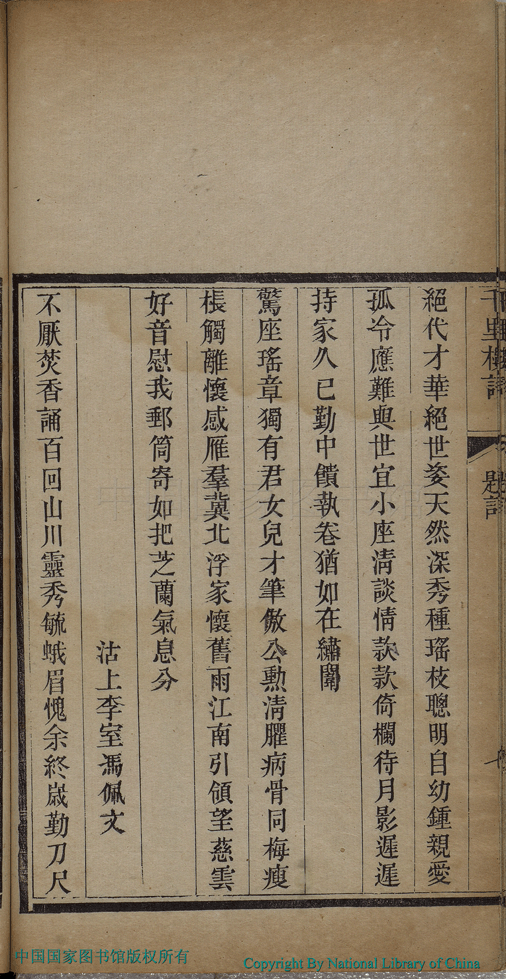 絕代才華絕世姿天然深秀種瑤枝聰明自幼鍾親愛
孤冷應難與世宜小座淸談情款款倚欄待月影遲遲
持家久已勤中饋執卷猶如在繡闈
驚座瑤章獨有君女兒才筆倣公勲淸臞病骨同梅瘦
棖觸離懷感雁羣冀北浮家懷舊雨江南引領望慈雲
好音慰我郵筒寄如把芝蘭氣息分
沽上李室馮佩文
不厭焚香誦百回山川靈秀毓蛾眉愧余終歲勤刀尺
中国国家图书馆版权所有
Copyright By National Library of China